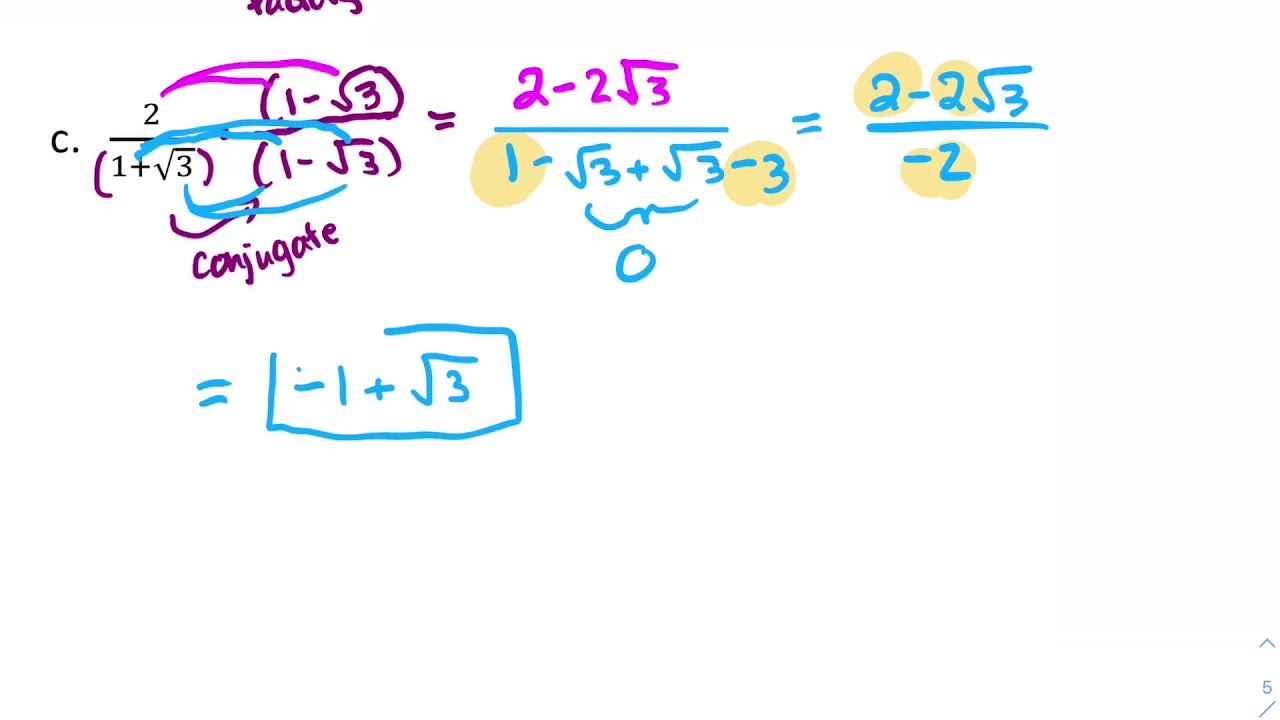 radicals
c. 2/(1+√3) (1-√3)/(1-√3) = (2-2√3)/(1-√3+√3-3) = (2-2√3)/(-2)
conjugate
0
= -1+√3
5